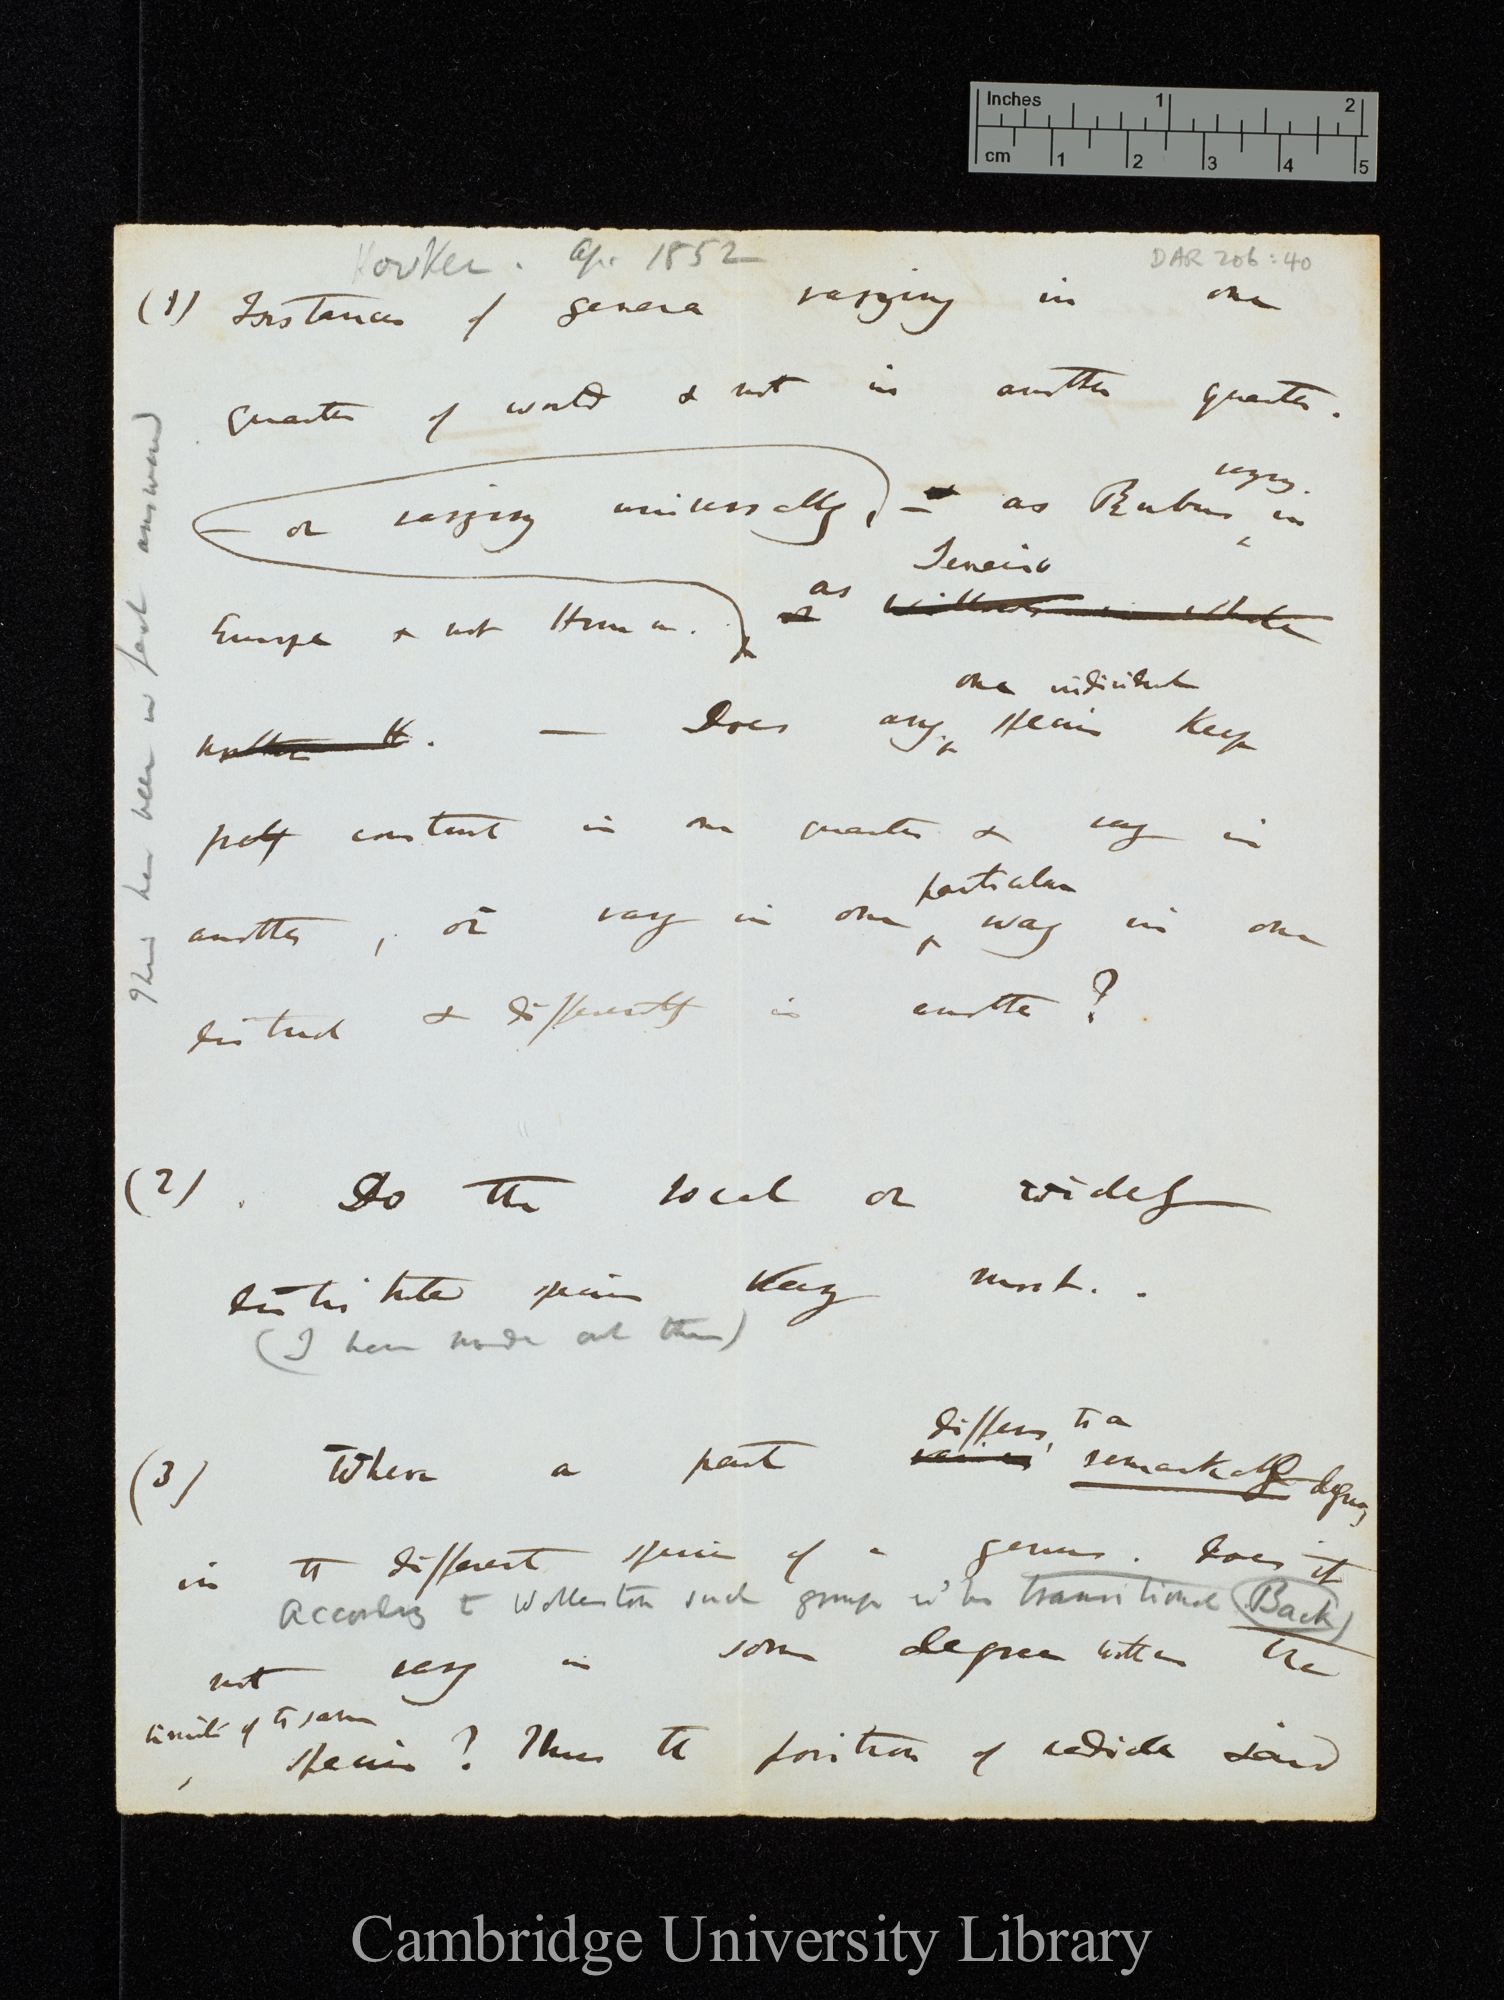 Inches 1 2
cm 1 2 3 4 5
Hooker. Ap. 1852
DAR 206:40
(1) Instances of genera varying in one
quarter of world & not in another quarter.
varying.
— or varying universally, — as Rubus in
Teneriffe
as
Europe & not
— Does any
one individual
species keep
constant in one quarter & vary in
particular
another, or vary in one way in one
district & differently in another?
This has been in part answered
(2). Do the local or widely
distributed species vary most.
(I have made out this)
differs, to a
(3) Where a part varies remarkably degree,
in the different species of a genus. Does it
According to Wollaston such groups wd be transitional (Back)
not vary in some degree within the
limits of the same
species? Thus the position of radicle said
Cambridge University Library